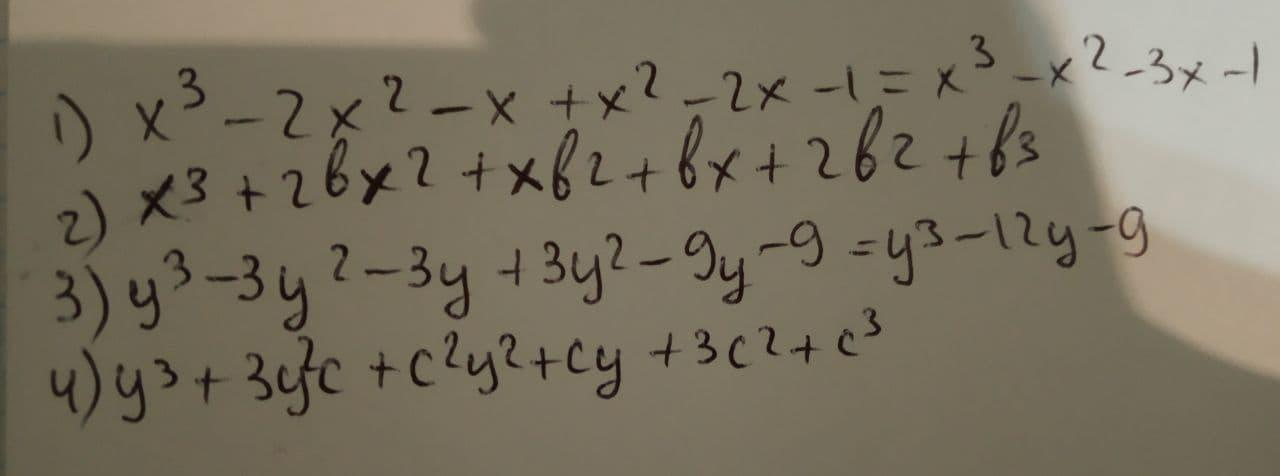 1) x³-2x²-x+x²-2x-1=x³-x²-3x-1
2) x3+2вx2+xв2+вx+2в2+в3
3) y³-3y²-3y+3y²-9y-9=y³-12y-9
4) y³+3y²c+c²y²+cy+3c²+c³